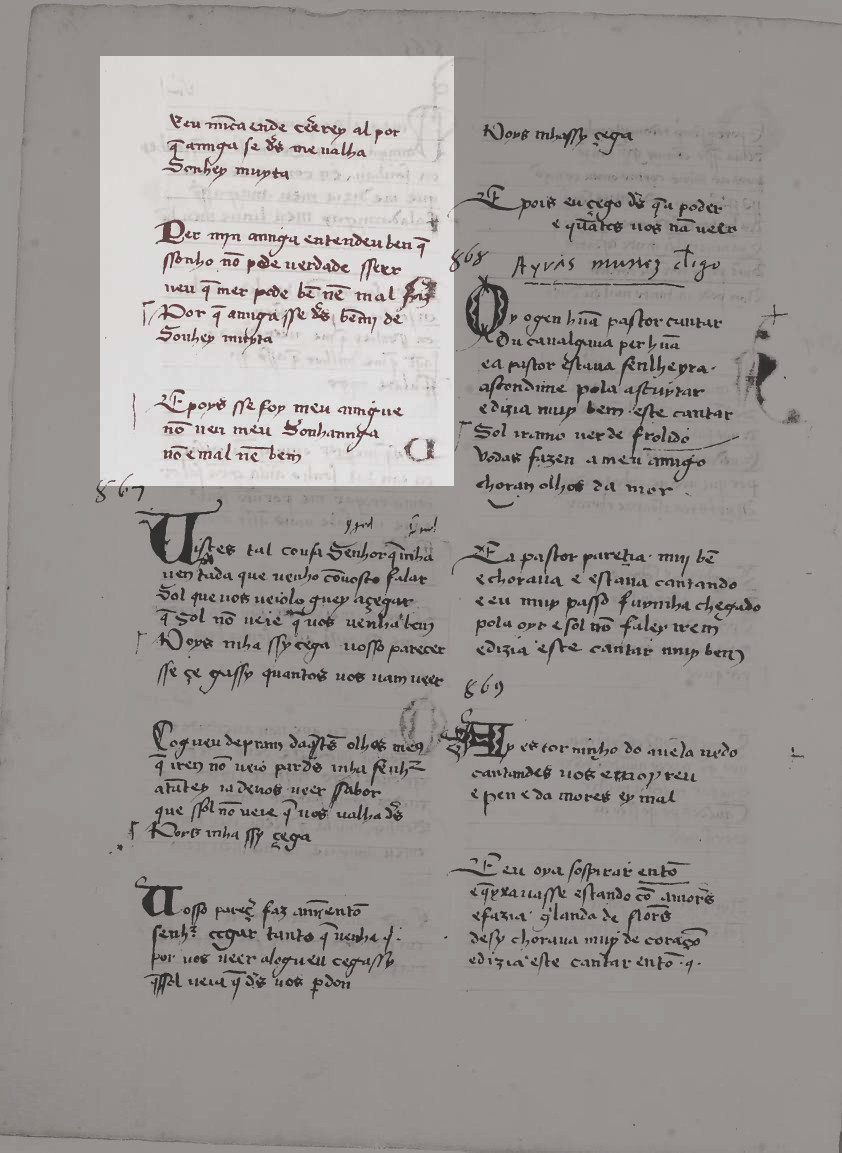 Eeu nūca ende cēerey al por
q̄ amiga se d̄s me valha
Sonhey muyta
Per myn amiga entendeu ben q̄
ssonho nō pode uerdade sseer
neu q̄ mer pode bē nē mal
Por q̄ amiga sse d̄s bem mj de
Sonhey muyta
E poys sse foy meu amigue
nō ueu meu Sonhamiga
nō e mal nē bem
867
Uistes tal coufa Senhor q̄ mha
uen tada que uenho cōuosco falar
Sol que uos ueio logu ey a çegar
q̄ Sol nō ueie q̄ uos uenha bem
Poys mha ssy cega uosso parecer
sse çe gassy quantos uos uam ueer
Logueu de pram daq̄stes olhos meus
q̄ irey nō ueio par d̄s mha senhr
atātey ia de uos ueer ssabor
que ssol nō ueie q̄ uos valha d̄s
Poys mha ssy çega
Uosso pareç faz amj entō
senhr cegar tanto q̄ uenha q.
por uos ueer alogueu cegassy
q̄ ssol ueia q̄ d̄s uos pdon
Poys mhassy çega
E pois eu çego d̄s q̄ a poder
e quātos uos nā ueer
868
Ayras nunez cligo
Oy ogen hūa pastor cantar
Du caualgaua per hūa
e a pastor estaua senlheyra.
ascondime pola ascuytar
e dizia muy bem este cantar
Sol ramo uerde frolido
vodas fazen a meu amigo
choran olhos da mor
E a pastor pareçia muj bē
e choraua e estaua cantando
e eu muy passo fuymha chegado
pola oyr e sol nō faley rem
e dizia este cantar muy ben
869
Ay estorninho do auela nedo
cantandes uos e moyreu
e pen e da mores ey mal
E eu oya sospirar entō
e q̄yxauasse estando cō amors
e fazia g̓landa de flors
desy choraua muy de coraçō
e dizia este cantar entō .q.